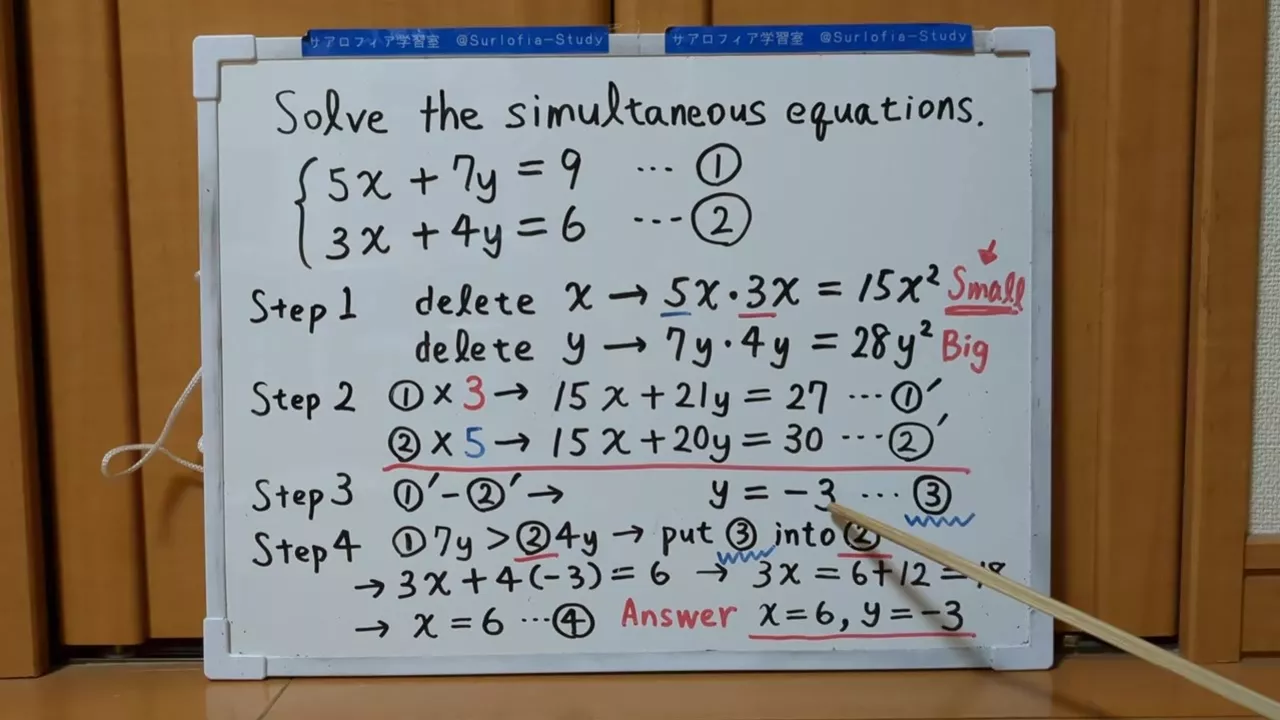 サアロフィア学習室 @Surlofia-Study
サアロフィア学習室 @Surlofia-Study
Solve the simultaneous equations.
5x + 7y = 9 ... ①
3x + 4y = 6 ... ②
Step 1 delete x → 5x・3x = 15x² Small
delete y → 7y・4y = 28y² Big
Step 2 ① × 3 → 15x + 21y = 27 ... ①′
② × 5 → 15x + 20y = 30 ... ②′
Step 3 ①′ - ②′ → y = -3 ... ③
Step 4 ① 7y > ② 4y → put ③ into ②
→ 3x + 4(-3) = 6 → 3x = 6 + 12 = 18
→ x = 6 ... ④ Answer x = 6, y = -3